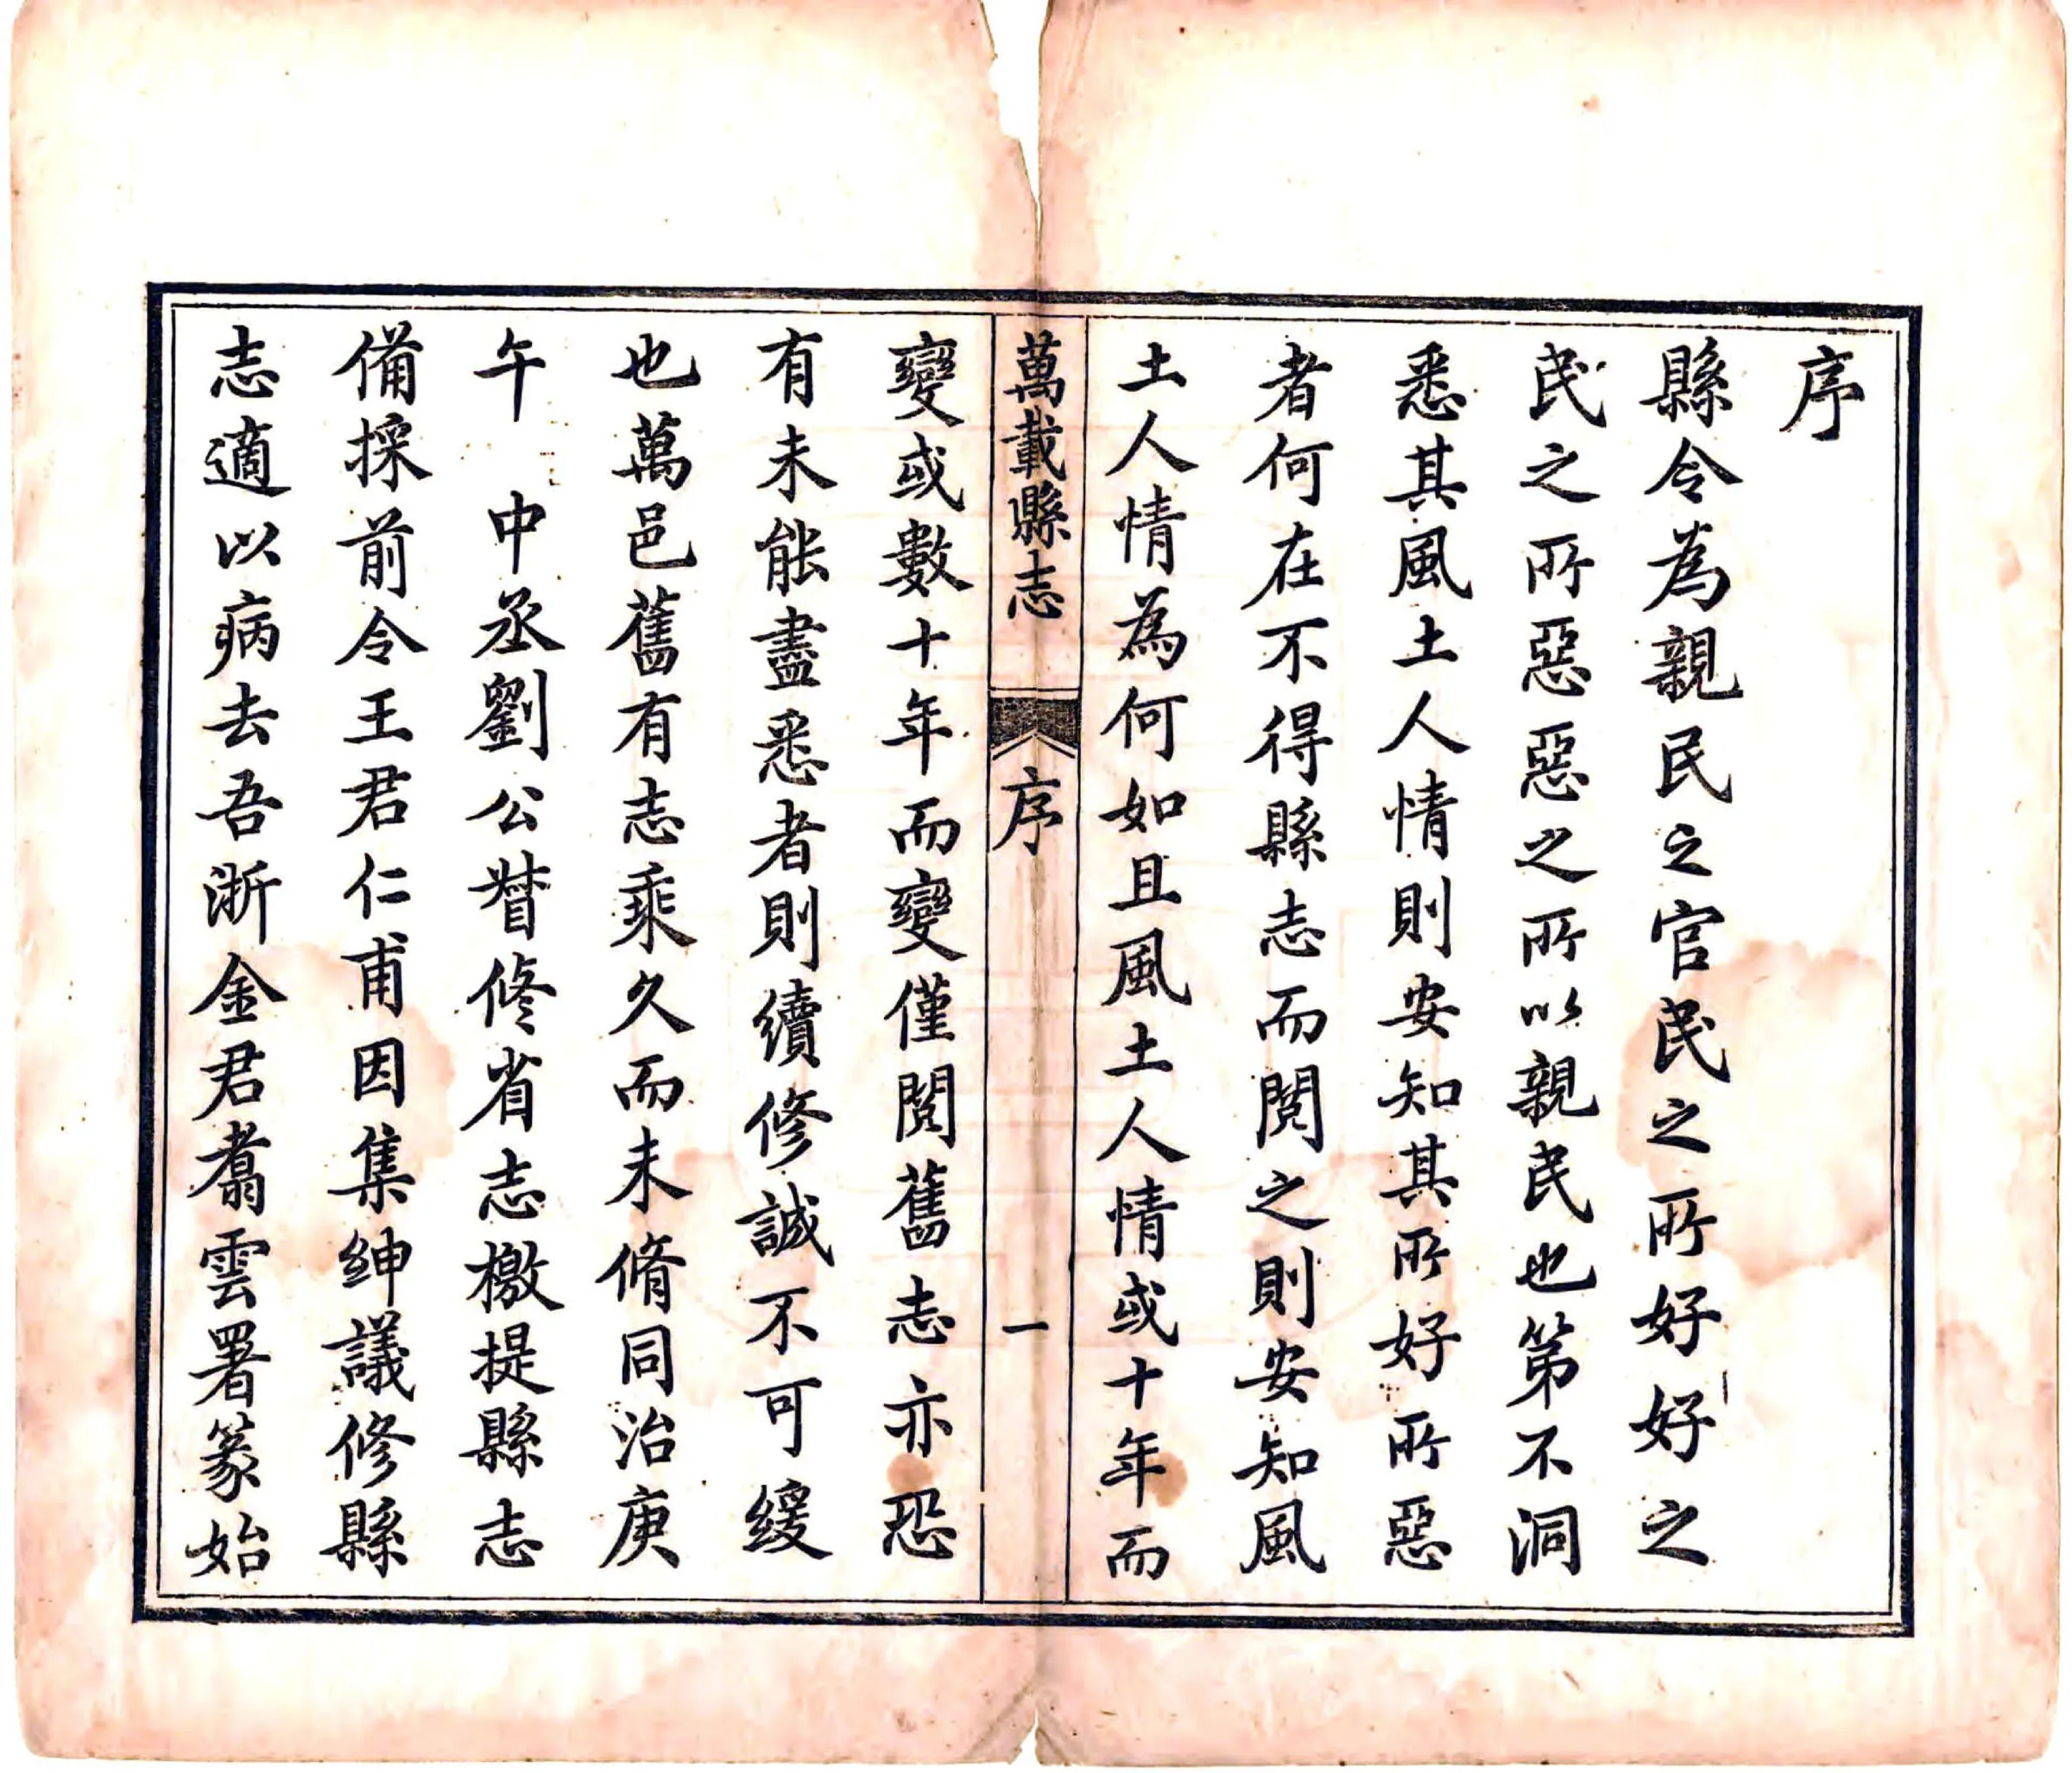 序
縣令為親民之官民之所好好之
民之所惡惡之所以親民也第不洞
悉其風土人情則安知其所好所惡
者何在不得縣志而閱之則安知風
土人情為何如且風土人情或十年而
萬載縣志 序 一
變或數十年而變僅閱舊志亦恐
有未能盡悉者則續修誠不可緩
也萬邑舊有志乘久而未脩同治庚
午 中丞劉公督修省志檄提縣志
備採前令王君仁甫因集紳議修縣
志適以病去吾浙金君翥雲署篆始